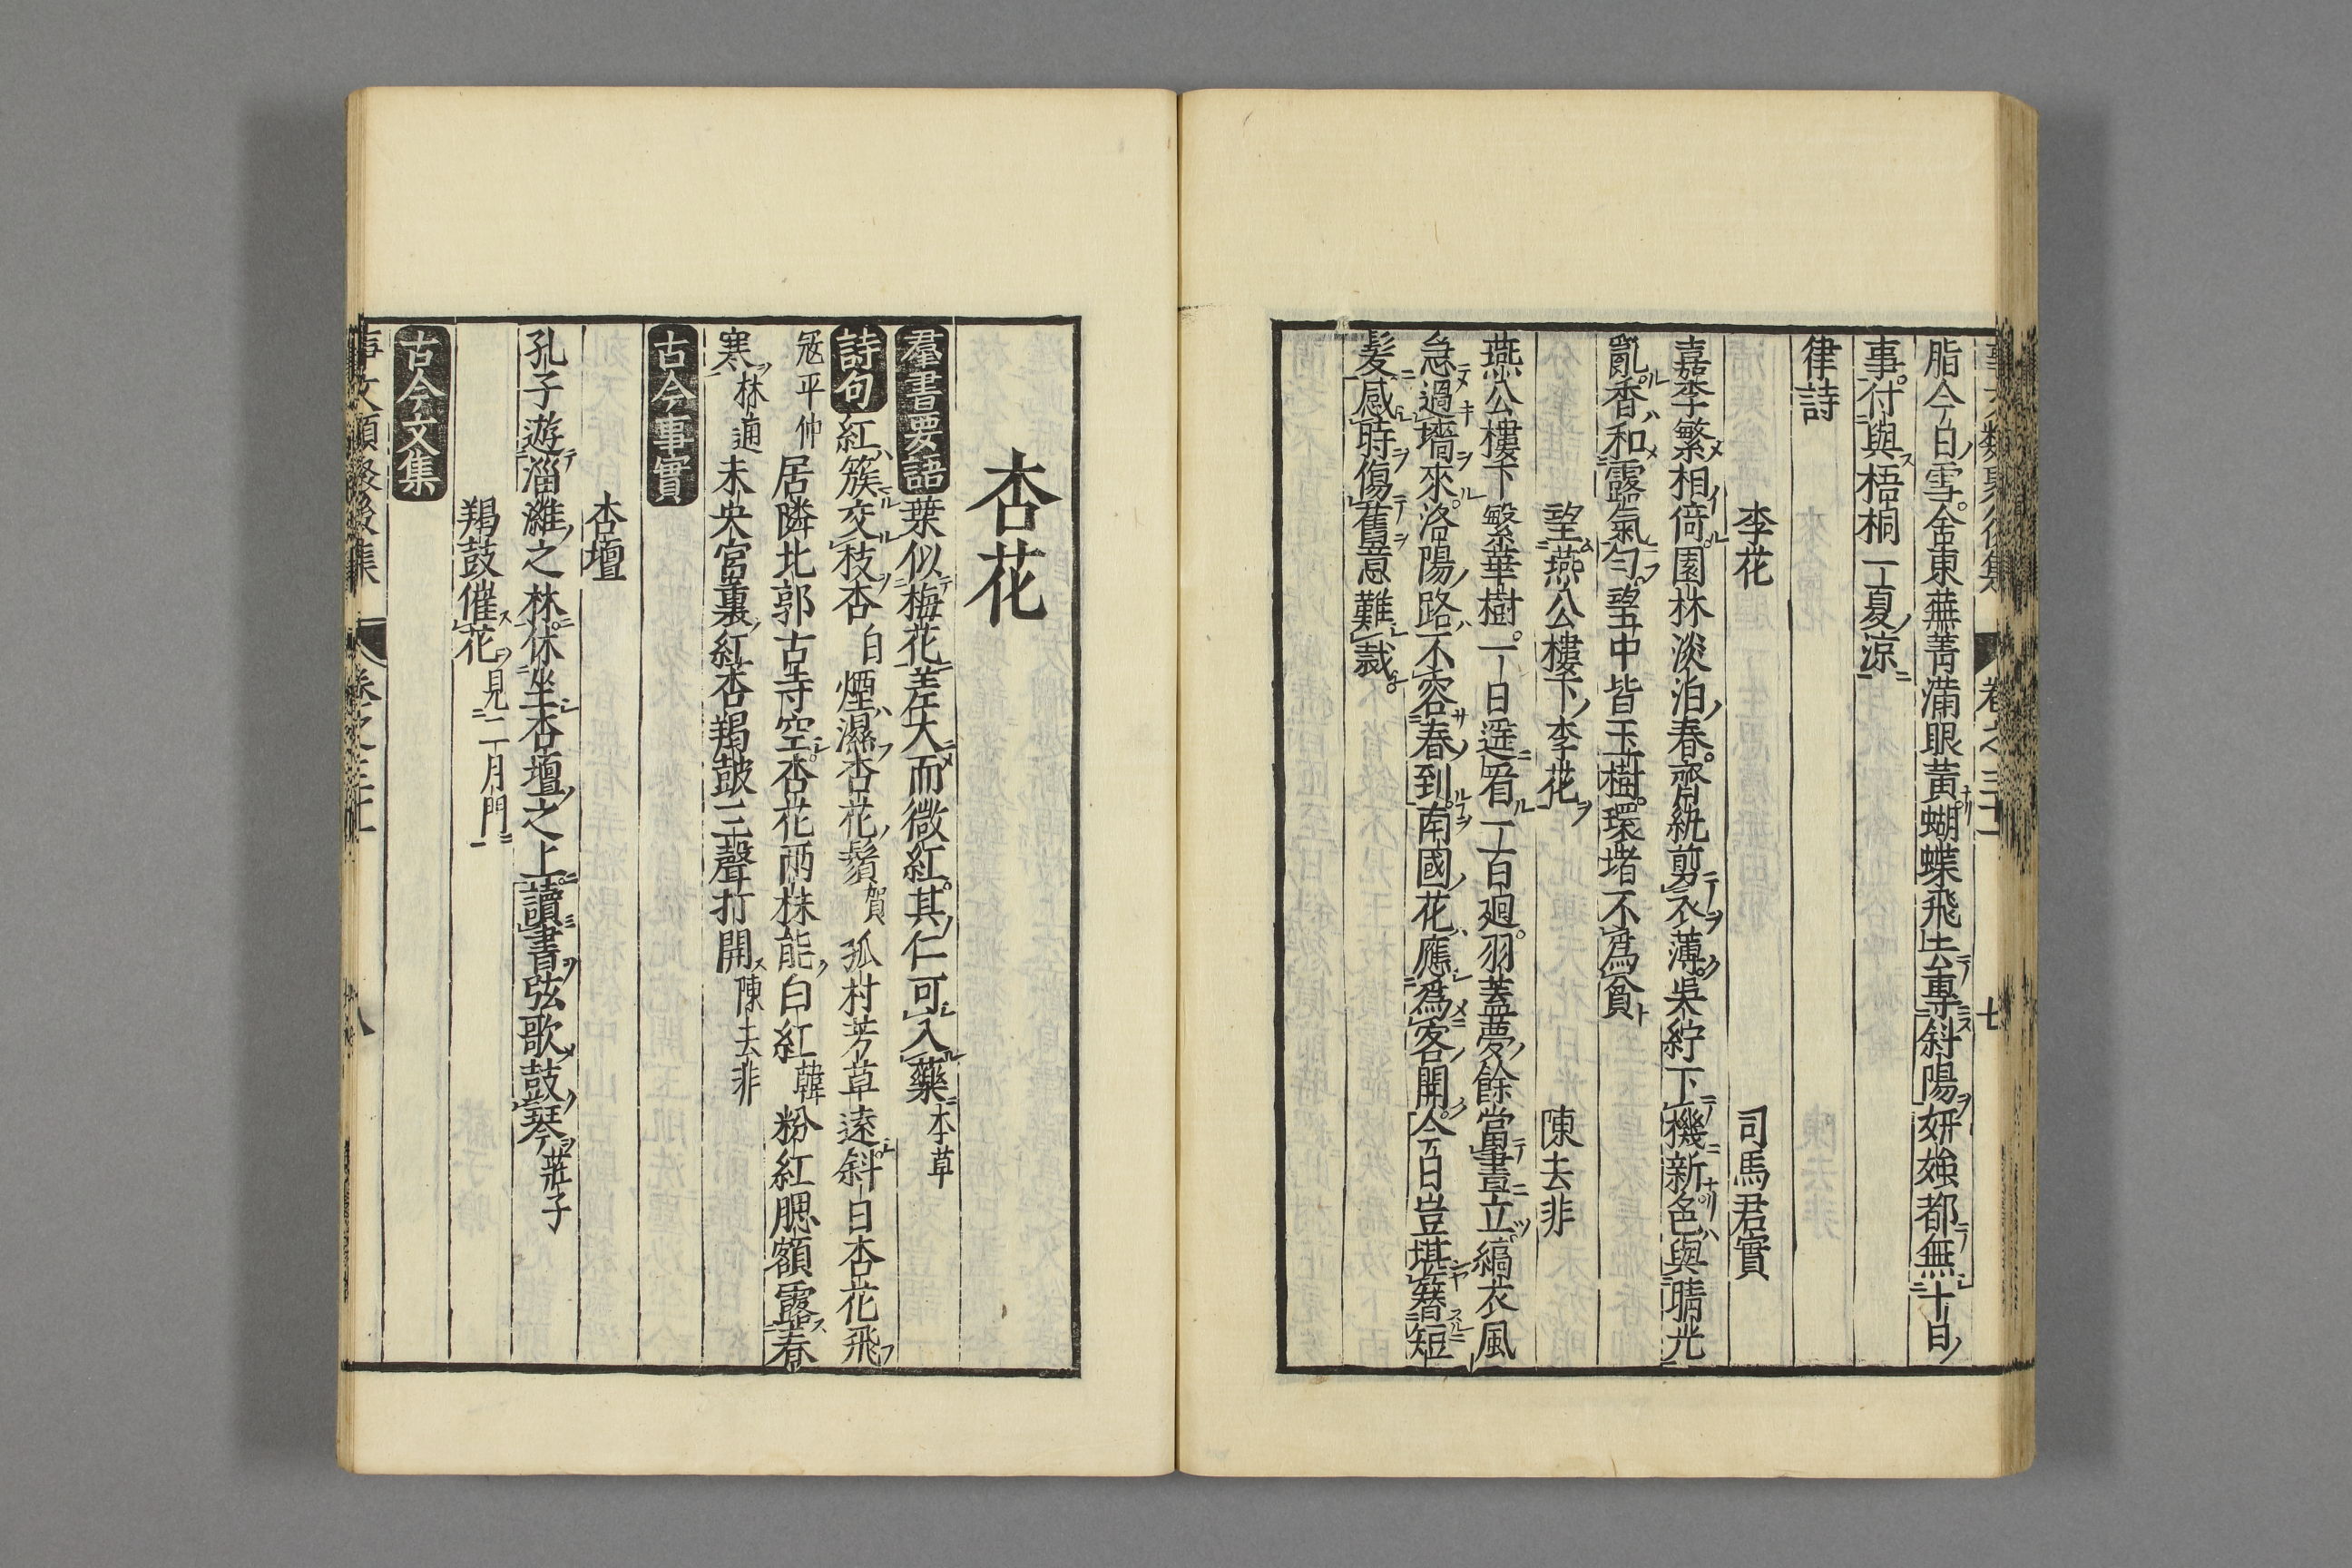 脂今日雪舍東蕪菁滿眼黃蝴蝶飛去專斜陽妍媸都無十日
事付與梧桐一夏凉
律詩
李花 司馬君實
嘉李繁相倚園林淡泊春齊紈剪衣薄吳紵下機新色與晴光
亂香和露氣勻望中皆玉樹環堵不爲貧
望燕公樓下李花 陳去非
燕公樓下繁華樹一日遥看一百迴羽蓋夢餘當晝立縞衣風
急過墻來洛陽路不容春到南國花應爲客開今日豈堪簪短
髮感時傷舊意難裁
杏花
羣書要語 葉似梅花差大而微紅其仁可入藥 本草
詩句 紅簇交枝杏 白 煙濕杏花鬚 賀 孤村芳草遠斜日杏花飛
冦平仲 居隣北郭古寺空杏花兩株能白紅 韓 粉紅腮額露春
寒 林逋 未央宮裏紅杏羯鼓三聲打開 陳去非
古今事實
杏壇
孔子遊淄濰之林休坐杏壇之上讀書弦歌鼓琴 莊子
羯鼓催花 見二月門
古今文集
事文類聚後集 卷之三十 八